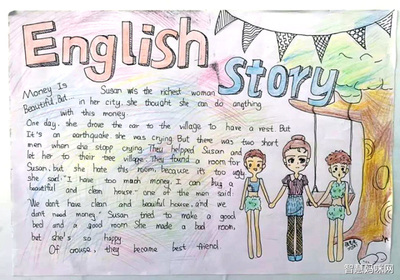 English
Story
Money Is
Beautiful, But
Susan was the richest woman
in her city, she thought she can do anything
with this money.
One day, she drove the car to the village to have a rest. But
It's an earthquake she was crying. But there was two short
men when she stopp crying. They helpped Susan and
let her to their tree village. They found a room for
Susan, but she hate this room, because it's too ugly
she said "I have too mach money, I can buy a
beautiful and clean house." one of the man said:
"We don't have clean and beautiful house, and we
don't need money." Susan tried to make a good
bed and a good room. She made a bad room,
but she's so happy
Of course, they became best friend.
智慧妈咪网